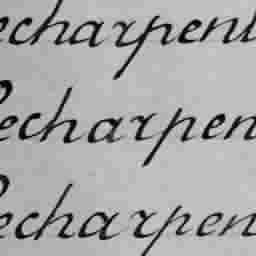 echarpent
echarpen
echarpen